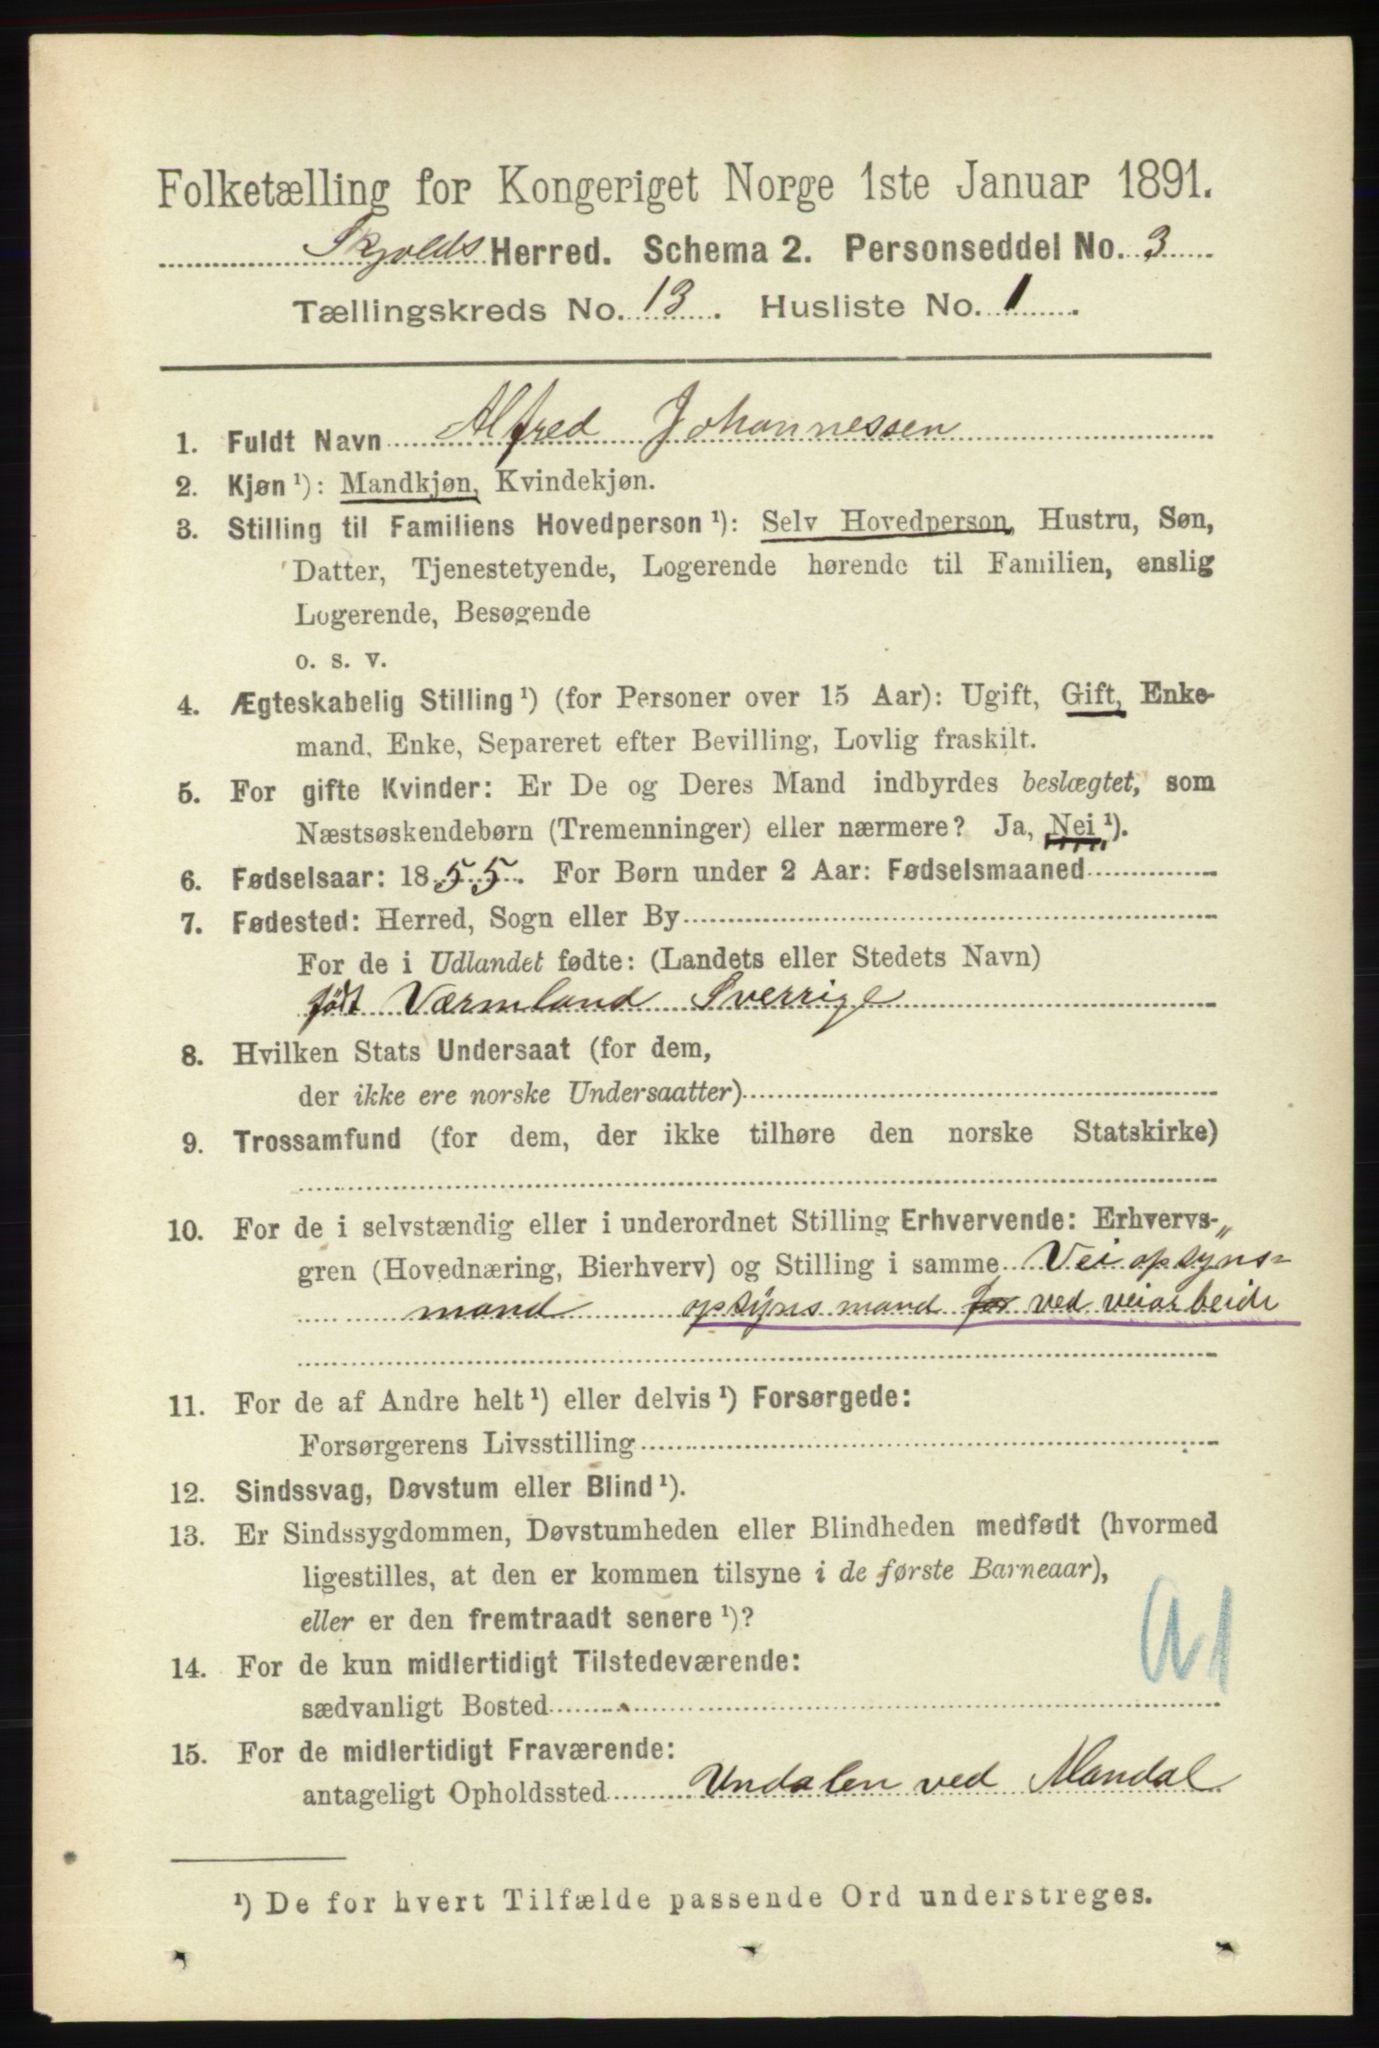 Folketælling for Kongeriget Norge 1ste Januar 1891.
Skjolds Herred. Schema 2. Personseddel No. 3
Tællingskreds No. 13. Husliste No. 1.
1. Fuldt Navn Alfred Johannessen
2. Kjøn ¹): Mandkjøn, Kvindekjøn.
3. Stilling til Familiens Hovedperson ¹): Selv Hovedperson, Hustru, Søn,
Datter, Tjenestetyende, Logerende hørende til Familien, enslig
Logerende, Besøgende
o. s. v.
4. Ægteskabelig Stilling ¹) (for Personer over 15 Aar): Ugift, Gift, Enke-
mand, Enke, Separeret efter Bevilling, Lovlig fraskilt.
5. For gifte Kvinder: Er De og Deres Mand indbyrdes beslægtet, som
Næstsøskendebørn (Tremenninger) eller nærmere? Ja, Nei ¹).
6. Fødselsaar: 1855. For Børn under 2 Aar: Fødselsmaaned
7. Fødested: Herred, Sogn eller By
For de i Udlandet fødte: (Landets eller Stedets Navn)
født Værmland Sverrige
8. Hvilken Stats Undersaat (for dem,
der ikke ere norske Undersaatter)
9. Trossamfund (for dem, der ikke tilhøre den norske Statskirke)
10. For de i selvstændig eller i underordnet Stilling Erhvervende: Erhvervs-
gren (Hovednæring, Bierhverv) og Stilling i samme Veiopsyns=
mand opsynsmand for ved veiarbeide
11. For de af Andre helt ¹) eller delvis ¹) Forsørgede:
Forsørgerens Livsstilling
12. Sindssvag, Døvstum eller Blind ¹).
13. Er Sindssygdommen, Døvstumheden eller Blindheden medfødt (hvormed
ligestilles, at den er kommen tilsyne i de første Barneaar),
eller er den fremtraadt senere ¹)?
A1
14. For de kun midlertidigt Tilstedeværende:
sædvanligt Bosted
15. For de midlertidigt Fraværende:
antageligt Opholdssted Undalen ved Mandal
¹) De for hvert Tilfælde passende Ord understreges.